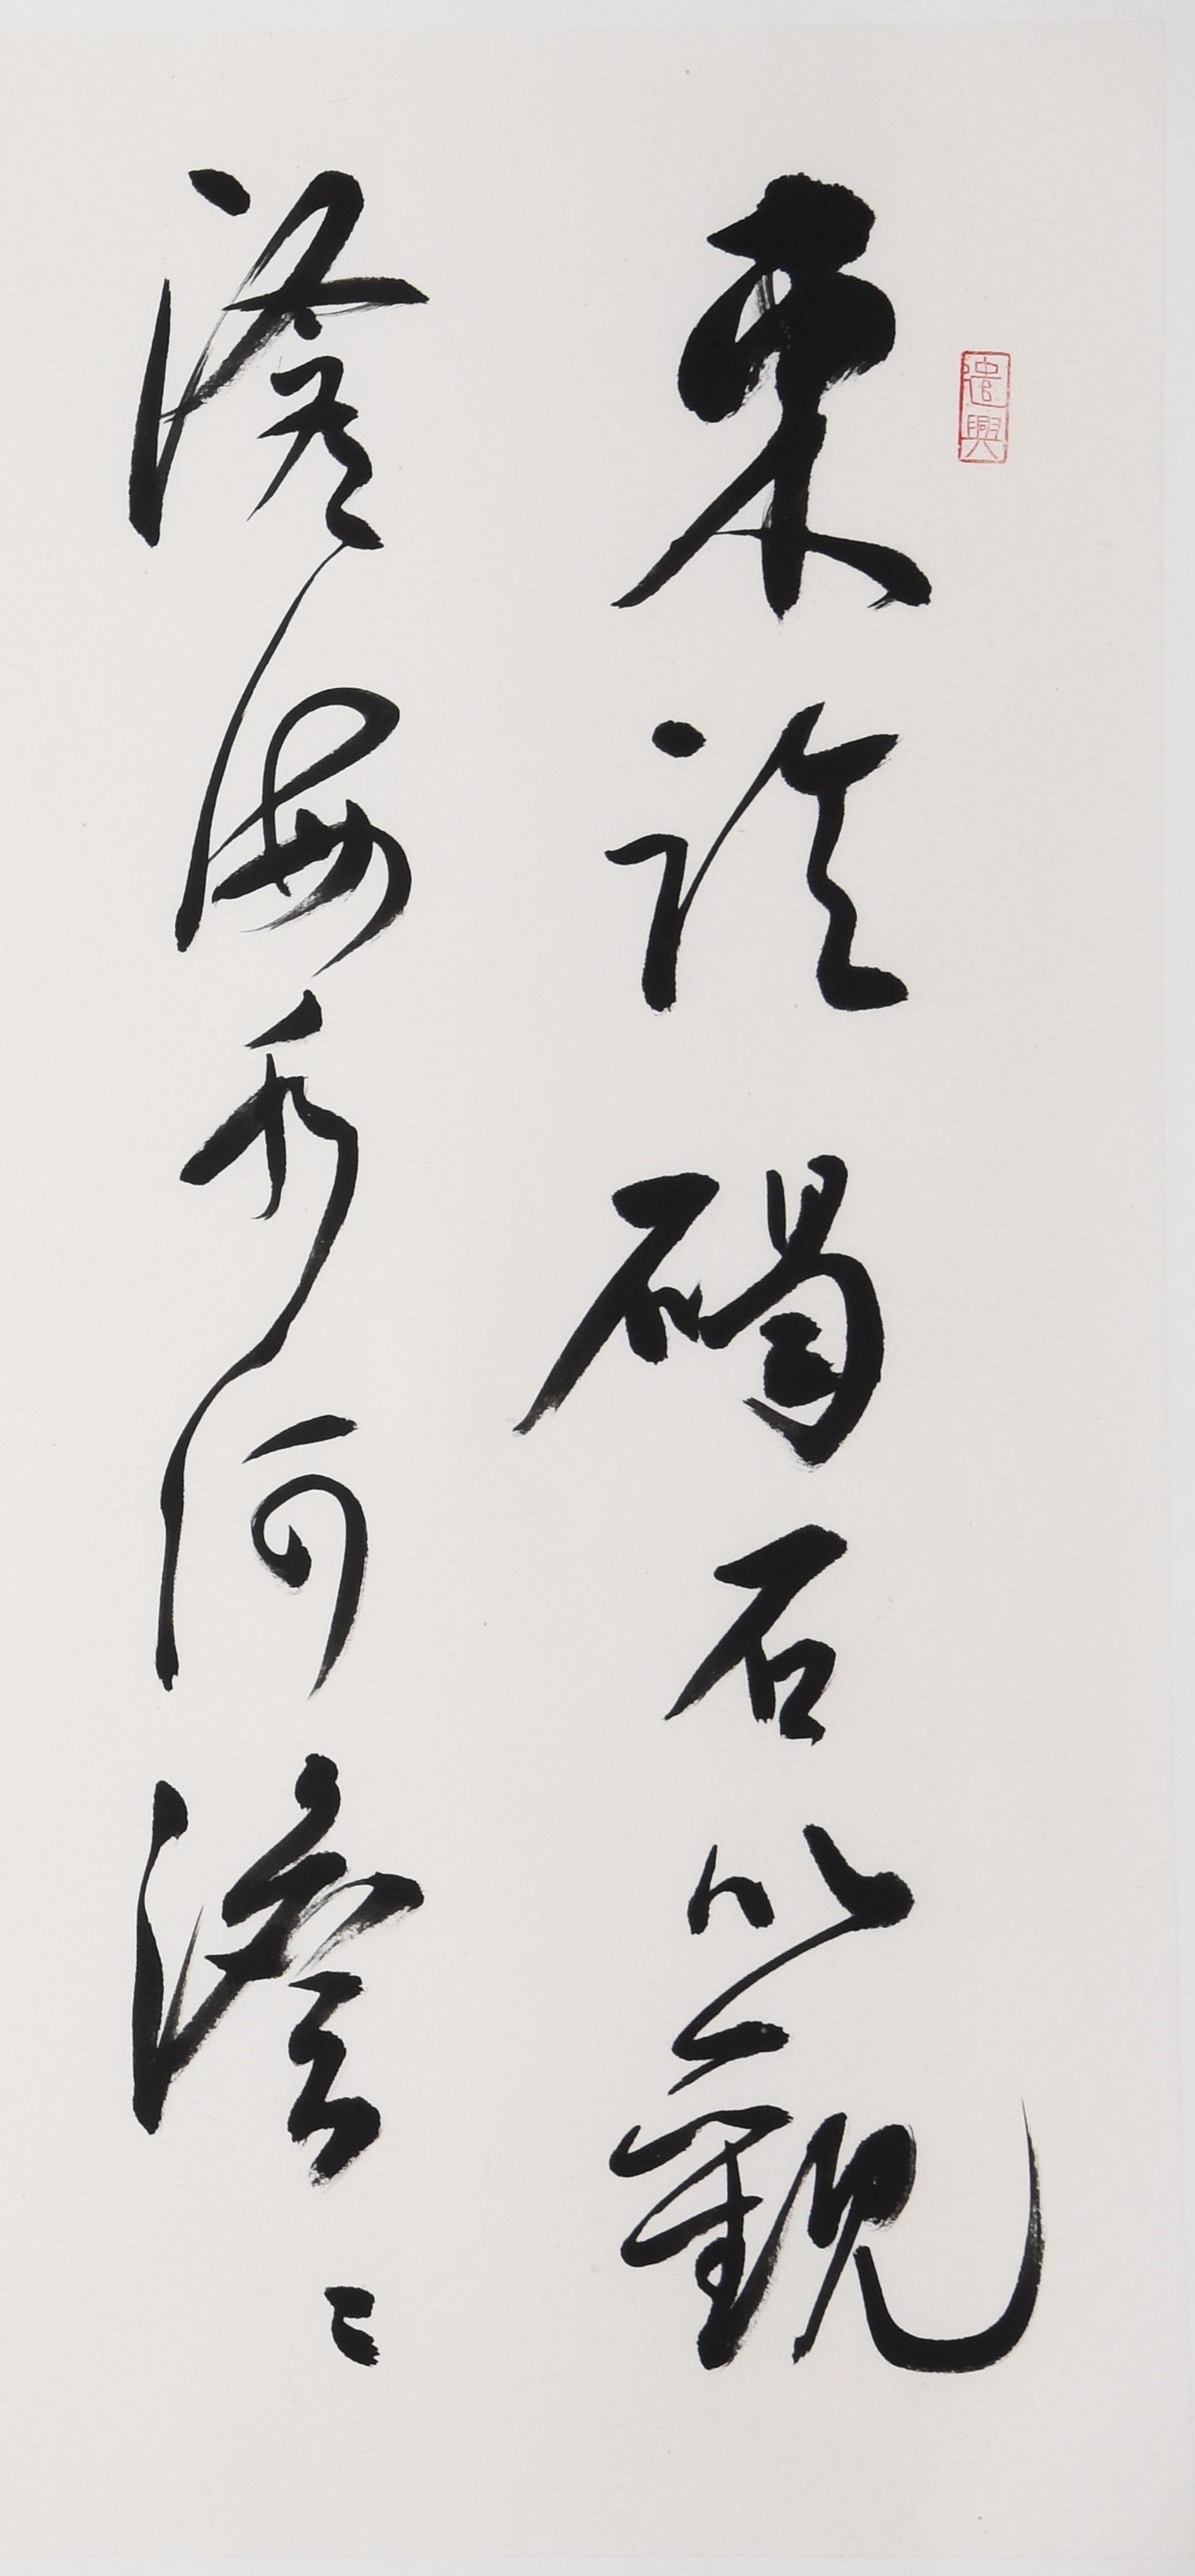 遣興
東臨碣石以觀
滄海水何澹〻